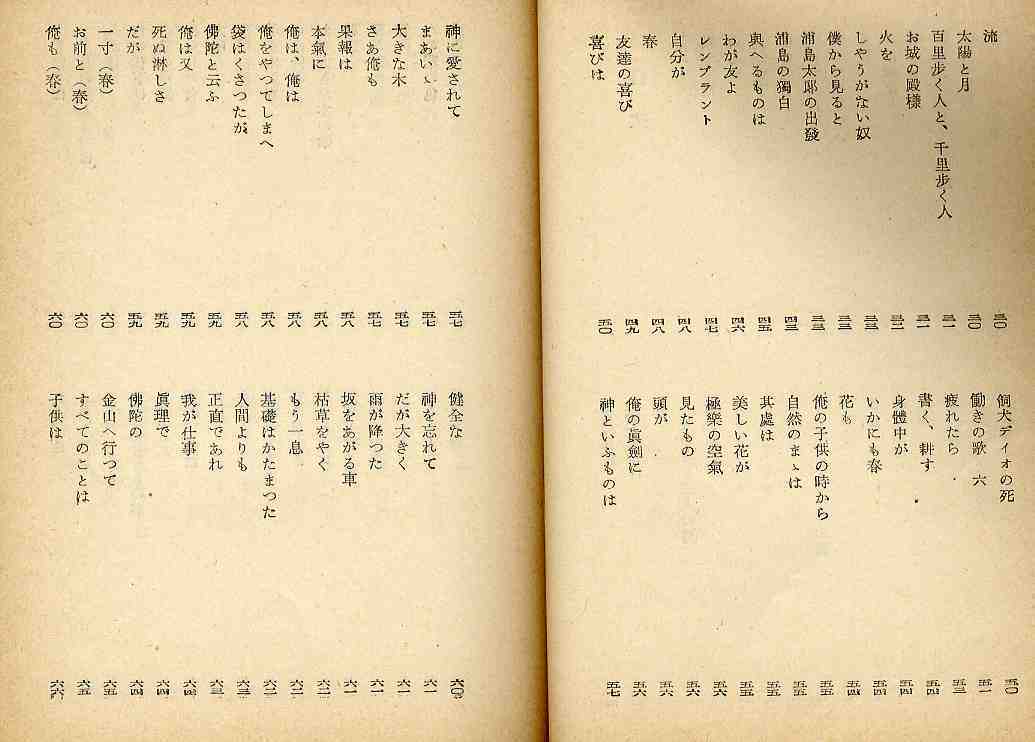 流 三〇
太陽と月 三〇
百里歩く人と、千里歩く人 三一
お城の殿樣 三一
火を 三二
しやうがない奴 三三
僕から見ると 三三
浦島太郎の出發 三三
浦島の獨白 四三
與へるものは 四五
わが友よ 四六
レンブラント 四七
自分が 四八
春 四八
友達の喜び 四九
喜びは 五〇
飼犬ディオの死 五〇
働きの歌 六 五一
疲れたら 五三
書く、耕す 五四
身體中が 五四
いかにも春 五四
花も 五四
俺の子供の時から 五五
自然のまゝは 五五
其處は 五五
美しい花が 五五
極樂の空氣 五六
見たもの 五六
頭が 五六
俺の眞劍に 五六
神といふものは 五七
神に愛されて 五七
まあいゝ 五七
大きな木 五七
さあ俺も 五七
果報は 五八
本氣に 五八
俺は、俺は 五八
俺をやつてしまへ 五八
袋はくさつたが 五八
佛陀と云ふ 五九
俺は又 五九
死ぬ淋しさ 五九
だが 五九
一寸（春） 六〇
お前と（春） 六〇
俺も（春） 六〇
健全な 六〇
神を忘れて 六一
だが大きく 六一
雨が降つた 六一
坂をあがる車 六一
枯草をやく 六二
もう一息 六二
基礎はかたまつた 六二
人間よりも 六三
正直であれ 六三
我が仕事 六四
眞理で 六四
佛陀の 六四
金山へ行つて 六五
すべてのことは 六五
子供は 六六